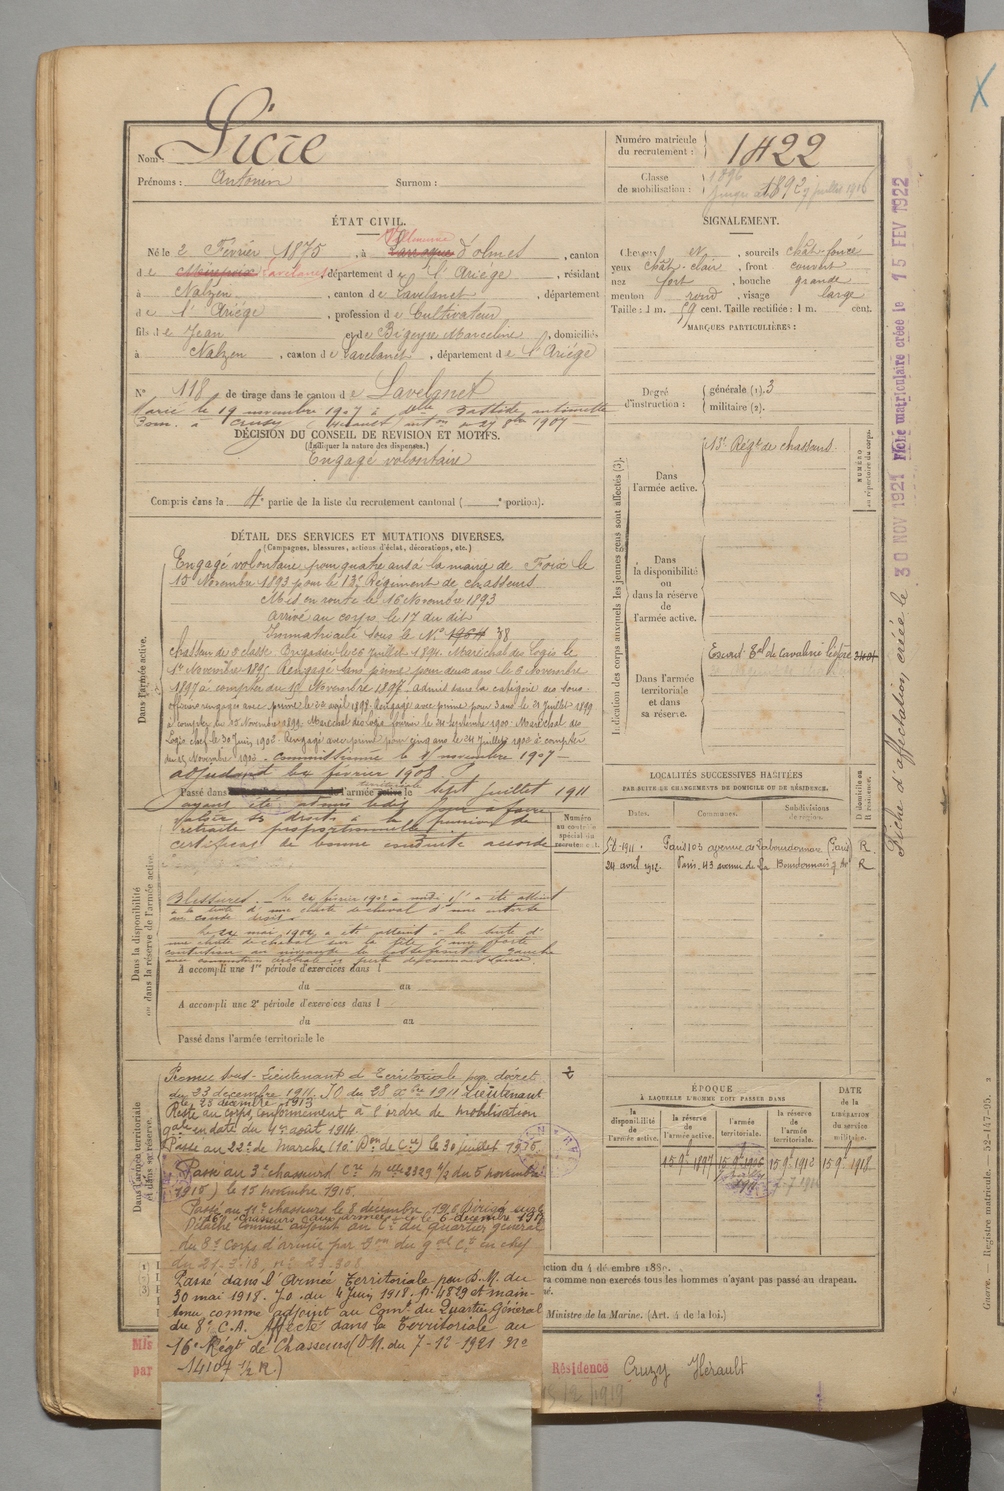 Nom : Sicre
Prénoms : Antonin Surnom :
Numéro matricule du recrutement : 1422
Classe de mobilisation : 1896
1892 9 juillet 1916
ÉTAT CIVIL.
Villeneuve
Né le 2 Février 1875, à Laroque d'olmes, canton
d e Mirepoix Lavelanet, département d e l'Ariège, résidant
à Nalzen, canton d e Lavelanet, département
d e l'Ariège, profession d e Cultivateur
fils d e Jean et d e Bigeyre Marceline, domiciliés
à Nalzen, canton d e Lavelanet, département d e l'Ariège
N° 118 de tirage dans le canton d e Lavelanet
Marié le 19 novembre 1907 à Delle Bastide antoinette
Dom. à Cruzy (Hérault) aut on du 27 8bre 1907
DÉCISION DU CONSEIL DE REVISION ET MOTIFS.
(Indiquer la nature des dispenses.)
Engagé volontaire
Compris dans la 4e partie de la liste du recrutement cantonal ( e portion).
SIGNALEMENT.
Cheveux N, sourcils chât. foncé
yeux chât. clair, front couvert
nez fort, bouche grande
menton rond, visage large
Taille : 1 m. 59 cent. Taille rectifiée : 1 m. cent.
MARQUES PARTICULIÈRES :
Degré d'instruction : générale (1). 3
militaire (2).
DÉTAIL DES SERVICES ET MUTATIONS DIVERSES.
(Campagnes, blessures, actions d'éclat, décorations, etc.)
Dans l'armée active.
Engagé volontaire pour quatre ans à la mairie de Foix le
15 Novembre 1893 pour le 13e Régiment de chasseurs
Mis en route le 16 Novembre 1893
Arrivé au corps le 17 du dit
Immatriculé sous le N° 1964 38
Chasseur de 2e classe. Brigadier le 26 juillet 1894. Maréchal des Logis le
1er Novembre 1895 Rengagé sans prime pour deux ans le 5 Novembre
1897 à compter du 15 Novembre 1897. admis dans la catégorie des sous-
officiers rengagés avec prime le 22 avril 1898. Rengagé avec prime pour 3 ans le 21 Juillet 1899
à compter du 15 Novembre 1899. Maréchal des Logis fourrier le 24 septembre 1900. Maréchal des
Logis chef le 30 Juin 1902. Rengagé avec prime pour cinq ans le 24 Juillet 1902 à compter
du 15 Novembre 1902. Commissionné le 15 novembre 1907 —
adjudant le février 1908.
Passé dans l'armée territoriale le sept juillet 1911
ayant été admis ledit jour à faire
valoir ses droits à la pension de
retraite proportionnelle.
certificat de bonne conduite accordé
Numéro au contrôle spécial du recrutement.
Dans la disponibilité ou dans la réserve de l'armée active.
Blessures. Le 22 février 1902 à midi il a été atteint
à la suite d'une chute de cheval d'une entorse
au coude droit.
Le 22 mai 1902 a été atteint à la suite d'
une chute de cheval sur la tête d'une forte
contusion au niveau de la bosse frontale gauche
avec commotion cérébrale et perte de connaissance.
A accompli une 1re période d'exercices dans l
du au
A accompli une 2e période d'exercices dans l
du au
Passé dans l'armée territoriale le
Dans l'armée territoriale et dans sa réserve.
Promu Sous-Lieutenant de Territoriale par décret
du 23 décembre 1911. JO du 28 Xbre 1911 Lieutenant
le 23 décembre 1915
Resté au corps, conformément à l'ordre de mobilisation
gale en date du 1er août 1914.
Passé au 22e de Marche (10e Don de Cie) le 30 juillet 1915.
Passé au 3e chasseurs Cn mlle 2329 1/2 du 5 novembre
1915) le 15 novembre 1915.
Passé au 11e chasseurs le 8 décembre 1916 Dirigé sur le
16e chasseurs aux armées le 6 décembre 1917
D'autre comme adjoint au Ct du Quartier général
du 8e Corps d'armée par Don du gal Ct en chef
du 21-3-18, n° 23.308
Passé dans l'Armée Territoriale par D.M. du
30 mai 1918. J.O. du 4 Juin 1918. p. 4829 et main-
tenu comme adjoint au Comt du Quartier Général
du 8e C.A. Affecté dans la Territoriale au
16e Régt de Chasseurs (DM. du 7-12-1921 N°
14107 1/2 R.)
Indication des corps auxquels les jeunes gens sont affectés (3).
Dans l'armée active. 13e Régt de chasseurs.
NUMÉRO au répertoire du corps.
Dans la disponibilité ou dans la réserve de l'armée active.
Dans l'armée territoriale et dans sa réserve.
Escad. Tal de Cavalerie légère
LOCALITÉS SUCCESSIVES HABITÉES
PAR SUITE DE CHANGEMENTS DE DOMICILE OU DE RÉSIDENCE.
Dates. Communes. Subdivisions de région. D domicile ou R résidence.
5-6-1911. Paris 103 avenue de Labourdonnais (Paris) R.
24 avril 1912. Paris. 43 avenue de La Bourdonnais 7e arrt R
ÉPOQUE
À LAQUELLE L'HOMME DOIT PASSER DANS
la disponibilité de l'armée active. la réserve de l'armée active. l'armée territoriale. la réserve de l'armée territoriale. DATE de la LIBÉRATION du service militaire.
15 9e 1897 15 9e 1912 15 9e 1918
Fiche d'affectation créée le 30 NOV 1921 Fiche matriculaire créée le 15 FEV 1922
ction du 4 décembre 1889.
ra comme non exercés tous les hommes n'ayant pas passé au drapeau.
Ministre de la Marine. (Art. 4 de la loi.)
Mis
par
Résidence Cruzy Hérault
/2/1919
Guerre. — Registre matricule. — 52-147-95.